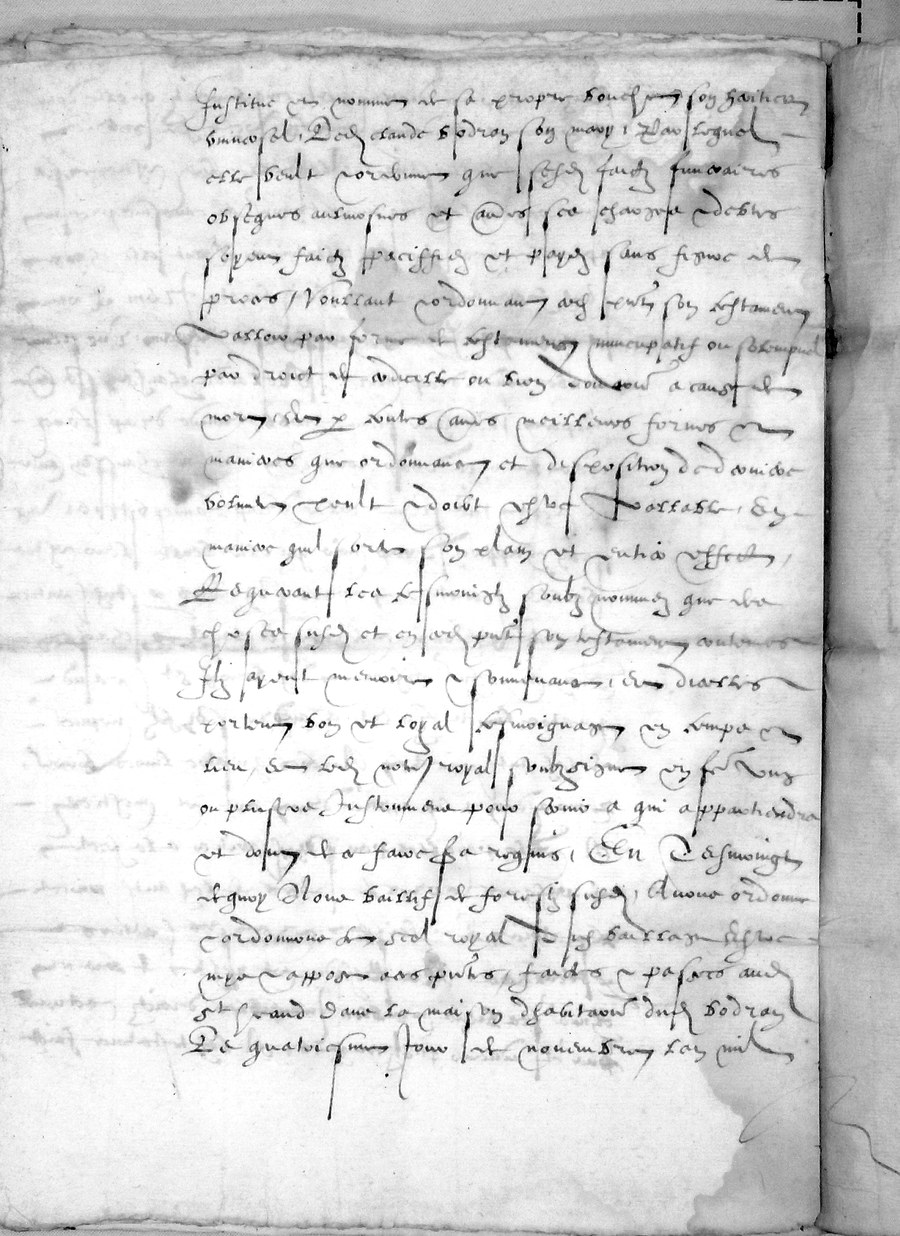 Institue et nomme de sa propre bouche son haritier
universel Ledit claude bodran son mary Par lequel
elle veult et ordonne que sesdits faictz funeraires
obseques aulmosnes et aultres ses charges et debtes
soyent faictz paciffiez et payez sans figure de
proces Voullant et ordonnant cedit present son testament
valloir par forme de testament nuncupatif ou solempnel
par droict de codicille ou bien donation a cause de
mort et par toutes aultres meilleures formes et
manieres que ordonnance et disposition de derniere
volunte peult et doibt estre vallable, En
maniere quil sorte son plain et entier effect
Requerant les tesmoingtz soubz nommez que des
choses susdites et en cedit present son testament contenues
Ilz ayent memoire et souvenance, et dicelles
porter bon et loyal tesmoignage en temps et
lieu, et ledit notaire royal soubzsigne en fere ung
ou plusieurs Instrumens pour servir a qui appartiendra
et de ce faire sera requis, En Tesmoingt
dequoy Nous bailly de forestz susdit, Avons ordonne
et ordonnons le scel royal dudit bailliage estre
mys et appose a ces presentes, faictes et passees audit
St heand dans la maison dhabitation dudit bodran
Le quatorziesme Jour de novembre lan mil